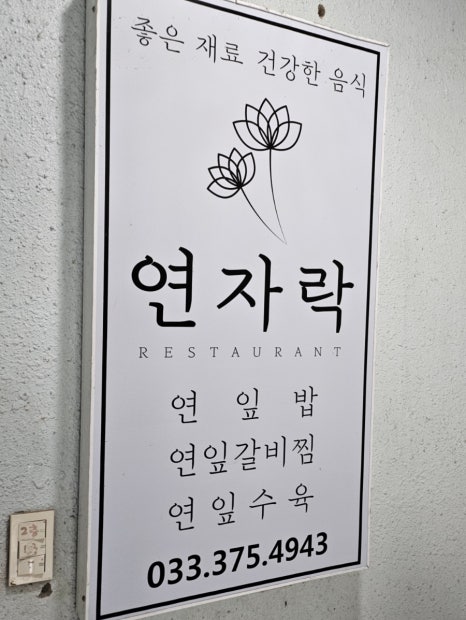 좋은 재료 건강한 음식
연자락
RESTAURANT
연 잎 밥
연잎갈비찜
연잎수육
033.375.4943
2층